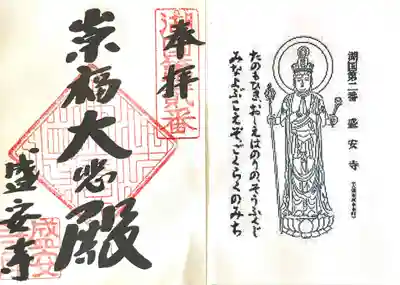 奉拝
崇福大悲殿
盛安寺
湖国第二番　盛安寺
たのもしき、おしえはのりのそうふくじ
みなよぶこえぞごくらくのみち